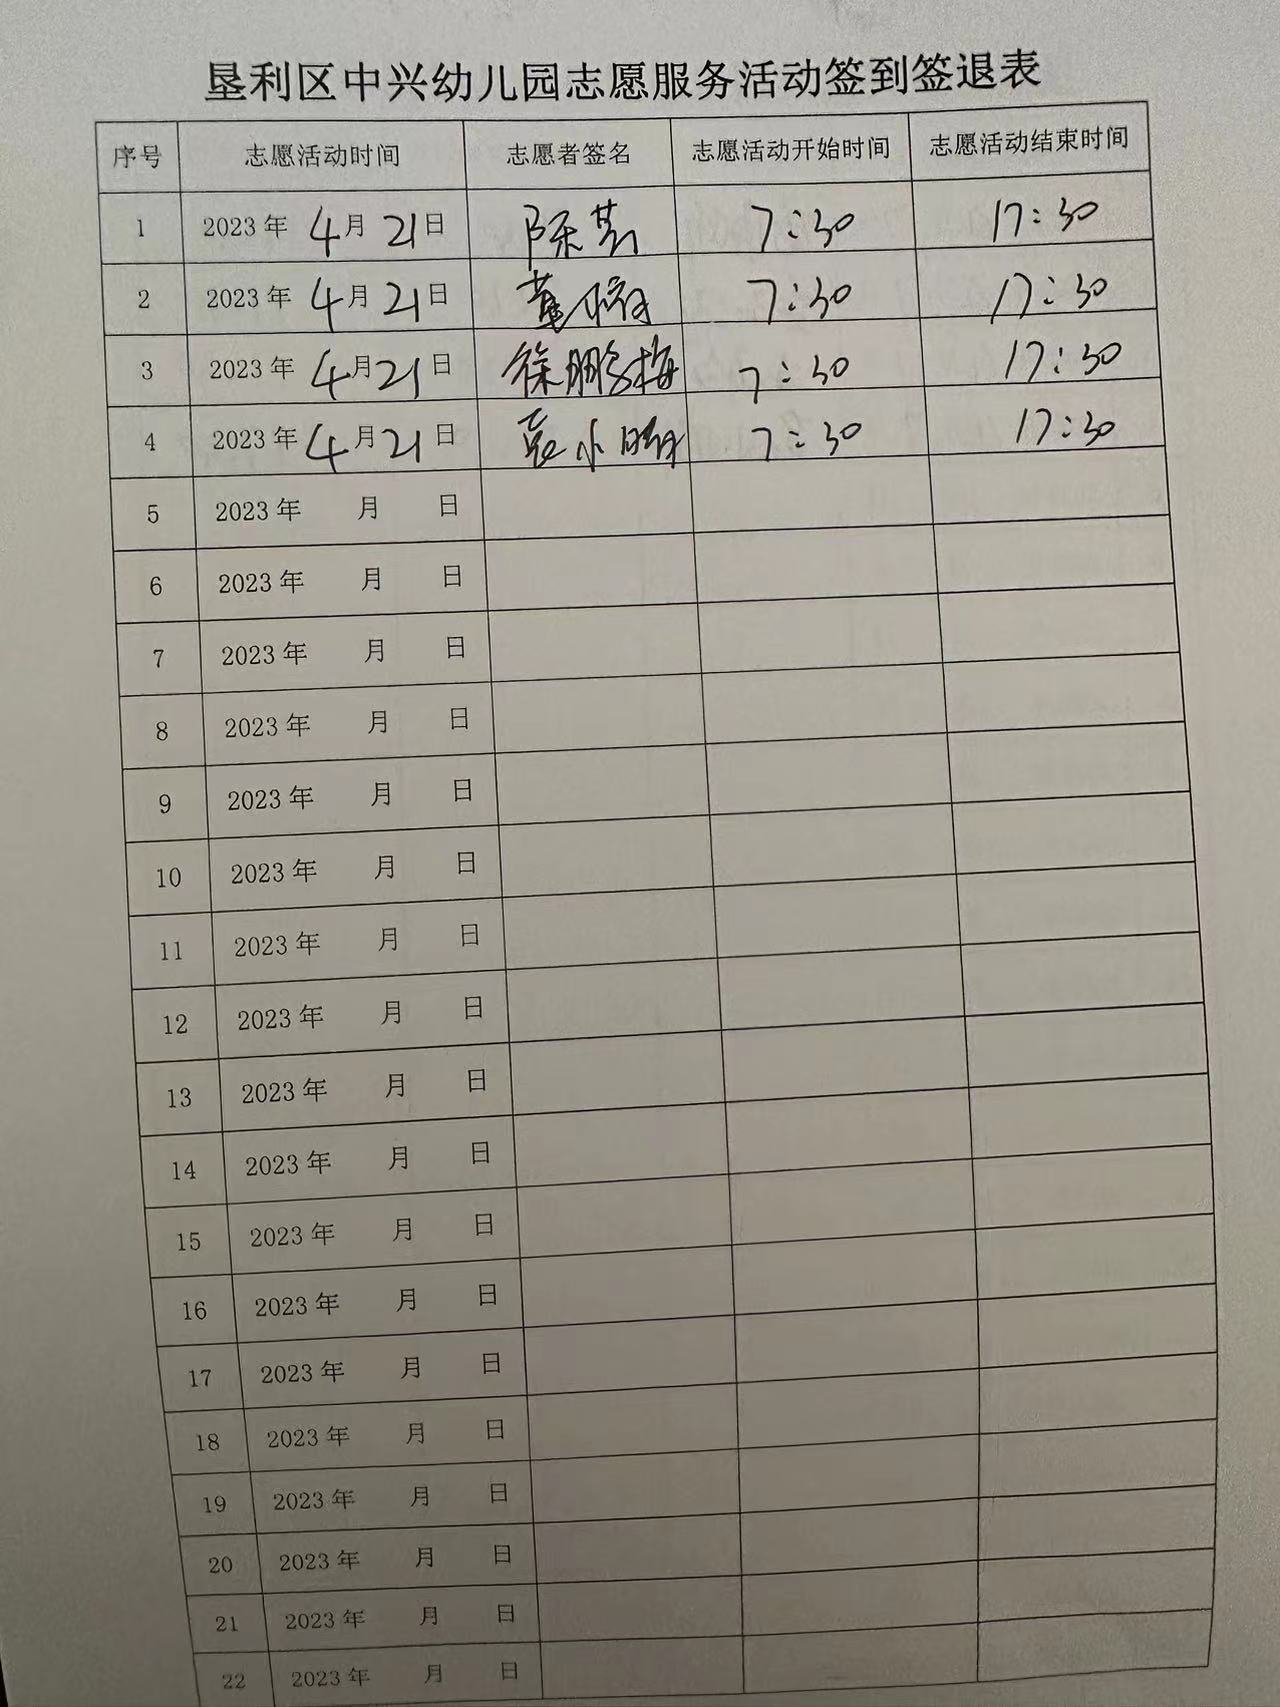 垦利区中兴幼儿园志愿服务活动签到签退表
序号 志愿活动时间 志愿者签名 志愿活动开始时间 志愿活动结束时间
1 2023年 4月 21日 陈芸 7:30 17:30
2 2023年 4月 21日 董 7:30 17:30
3 2023年 4月 21日 徐鹏梅 7:30 17:30
4 2023年 4月 21日 袁小 7:30 17:30
5 2023年 月 日
6 2023年 月 日
7 2023年 月 日
8 2023年 月 日
9 2023年 月 日
10 2023年 月 日
11 2023年 月 日
12 2023年 月 日
13 2023年 月 日
14 2023年 月 日
15 2023年 月 日
16 2023年 月 日
17 2023年 月 日
18 2023年 月 日
19 2023年 月 日
20 2023年 月 日
21 2023年 月 日
22 2023年 月 日